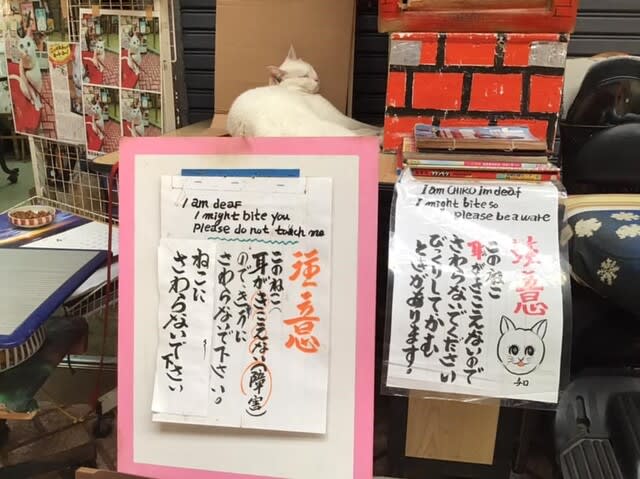 I am deaf
I might bite you
Please do not touch me
注意
このねこ
耳がきこえない(障害)
のできゅうに
さわらないで下さい。
ねこに
さわらないで下さい
I am CHIRO im deaf
I might bite so
please be a ware
注意
このねこ
耳がきこえないので
さわらないでください
びっくりしてかむ
ときがあります。
チロ